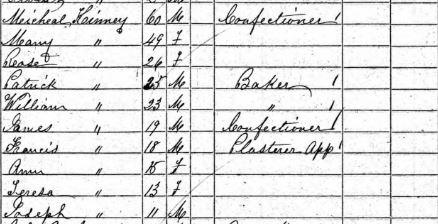 Micheal Kinney 60 M Confectioner /
Mary " 49 F
Rose " 26 F
Patrick " 25 M Baker /
William " 23 M " /
James " 19 M Confectioner /
Francis " 18 M Plasterer App /
Ann " 15 F
Teresa " 13 F
Joseph " 11 M